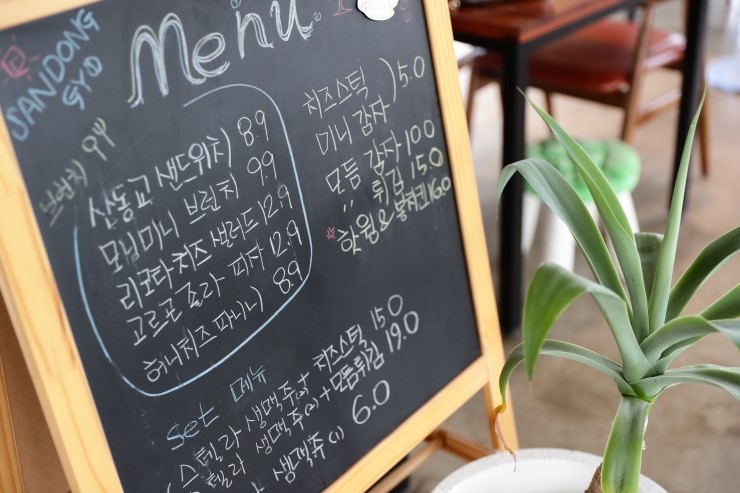 SANDONG
GYO
Menu
브런치 9작
산동교 샌드위치) 8.9
모닝미니 브런치 9.9
리코타치즈 샐러드 12.9
고르곤졸라 피자 12.9
허니치즈 파니니) 8.9
치즈스틱 ) 5.0
미니 감자
모듬 감자 10.0
〃 튀김 15.0
핫윙&봉 16.0
Set 메뉴
스텔라 생맥주(1) 치즈스틱 15.0
텔라 생맥주(1)+모듬튀김 19.0
생맥주(1) 6.0